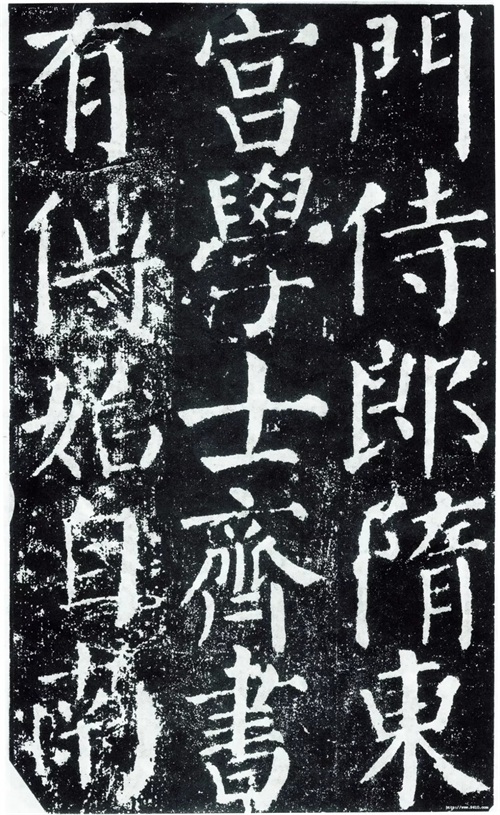 門侍郎隋東
宮學士齊書
有始自南